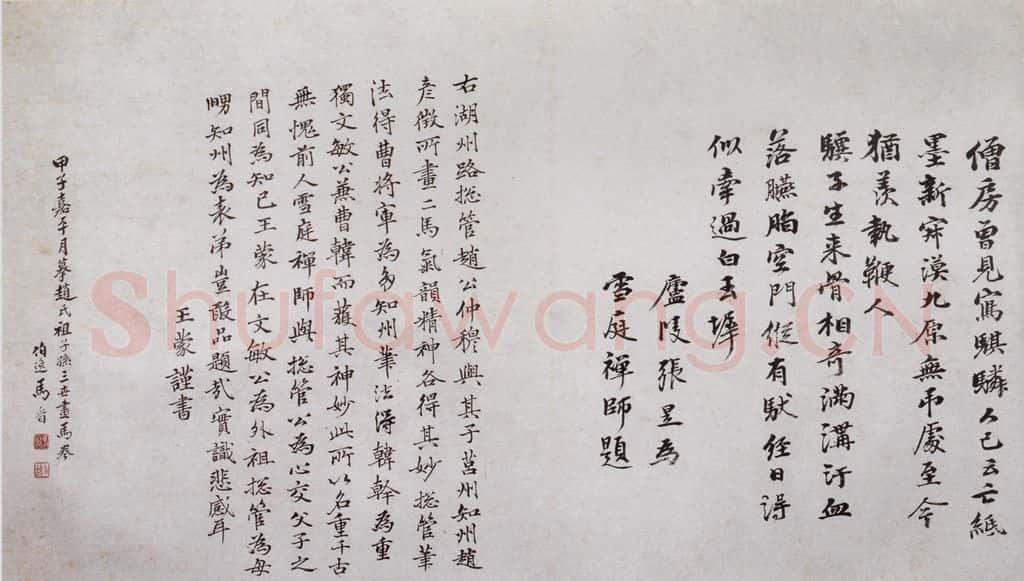 僧房曾見寫騏驎人已云亡紙
墨新寂漠九原無吊處至今
猶羨執鞭人
驥子生来骨相奇滿溝汗血
落臙脂空門縱有馱経日得
似牽過白玉墀
廬陵張昱為
雪庭禪師題
右湖州路捴管趙公仲穆與其子莒州知州趙
彦徵所畫二馬氣韻精神各得其妙捴管筆
法得曹將軍為多知州筆法得韓幹為重
獨文敏公兼曹韓而蓰其神妙此所以名重千古
無愧前人雪庭禪師與捴管公為心交父子之
間同為知己王蒙在文敏公為外祖捴管為母
舅知州為表弟豈敢品題㢤實識悲感耳
王蒙謹書
甲子嘉平月摹趙氏祖子孫三世畫馬卷
伯逸馬晋
Shufawang.CN